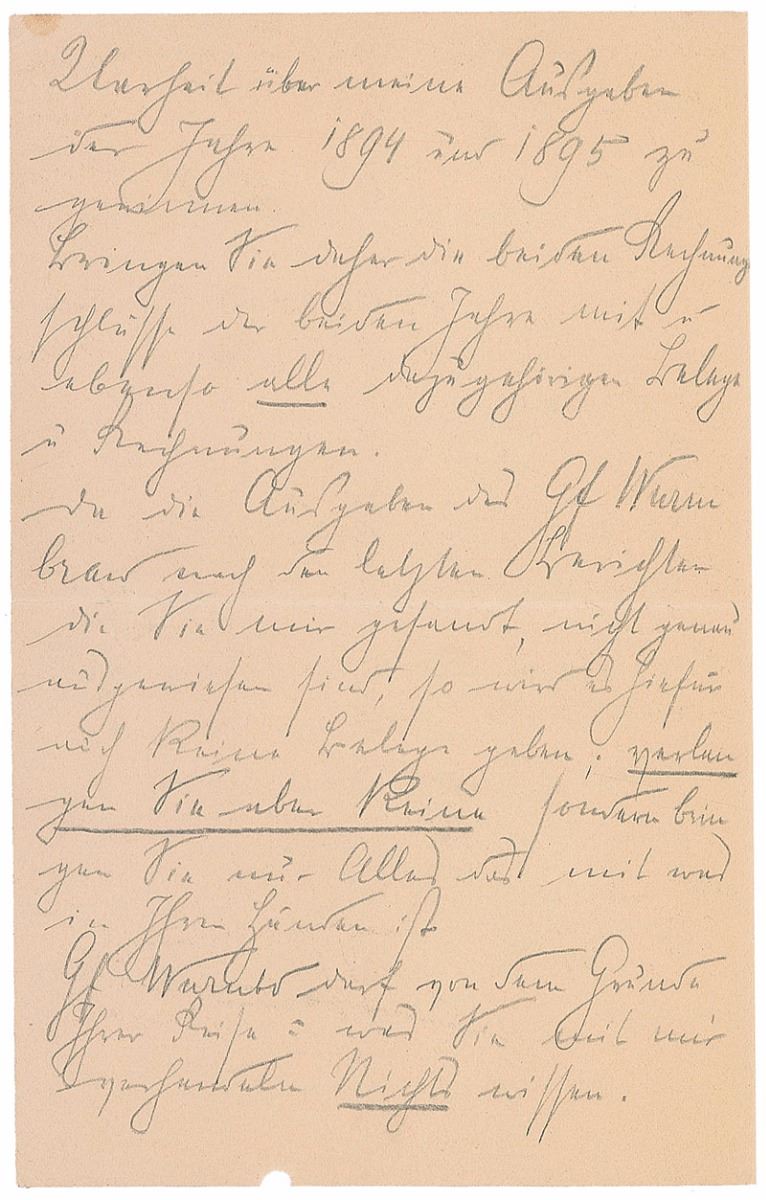 Klarheit über meine Ausgaben
der Jahre 1894 und 1895 zu
gewinnen.
Bringen Sie daher die beiden Rechnungs
schlüsse der beiden Jahre mit u
ebenso alle dazugehörigen Belege
u Rechnungen.
Da die Ausgaben des Gf Wurm
brand nach den letzten Berichten
die Sie mir gesandt, nicht genau
ausgewiesen sind, so wird es hiefür
auch keine Belege geben; verlan
gen Sie aber keine sondern brin
gen Sie nur Alles das mit was
in Ihren Händen ist
Gf Wurmbd darf von dem Grunde
Ihrer Reise = was Sie mit mir
verhandeln Nichts wissen.